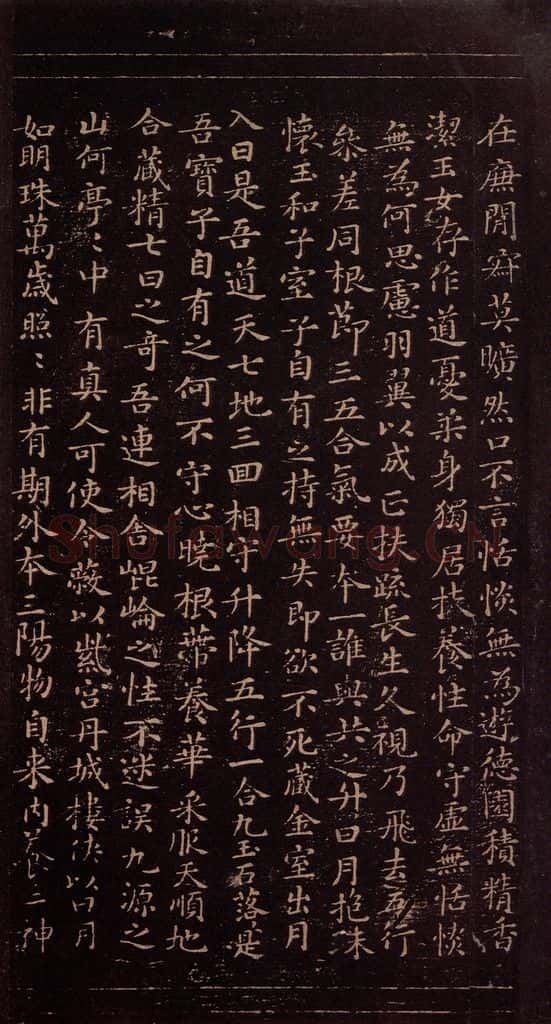 在廡閒寂莫曠然口不言恬惔無為遊德園積精香
潔玉女存作道憂柔身獨居扶養性命守虛無恬惔
無為何思慮羽翼以成正扶疏長生久視乃飛去五行
參差同根節三五合氣要本一誰與共之升日月抱珠
懷玉和子室子自有之持無失即欲不死藏金室出月
入日是吾道天七地三回相守升降五行一合九玉石落是
吾寶子自有之何不守心曉根蔕養華采服天順地
合藏精七日之奇吾連相合崐崘之性不迷誤九源之
山何亭〻中有真人可使令蔽以紫宮丹城樓俠以日月
如明珠萬歲照〻非有期外本三陽物自来內養三神
Shufawang.CN